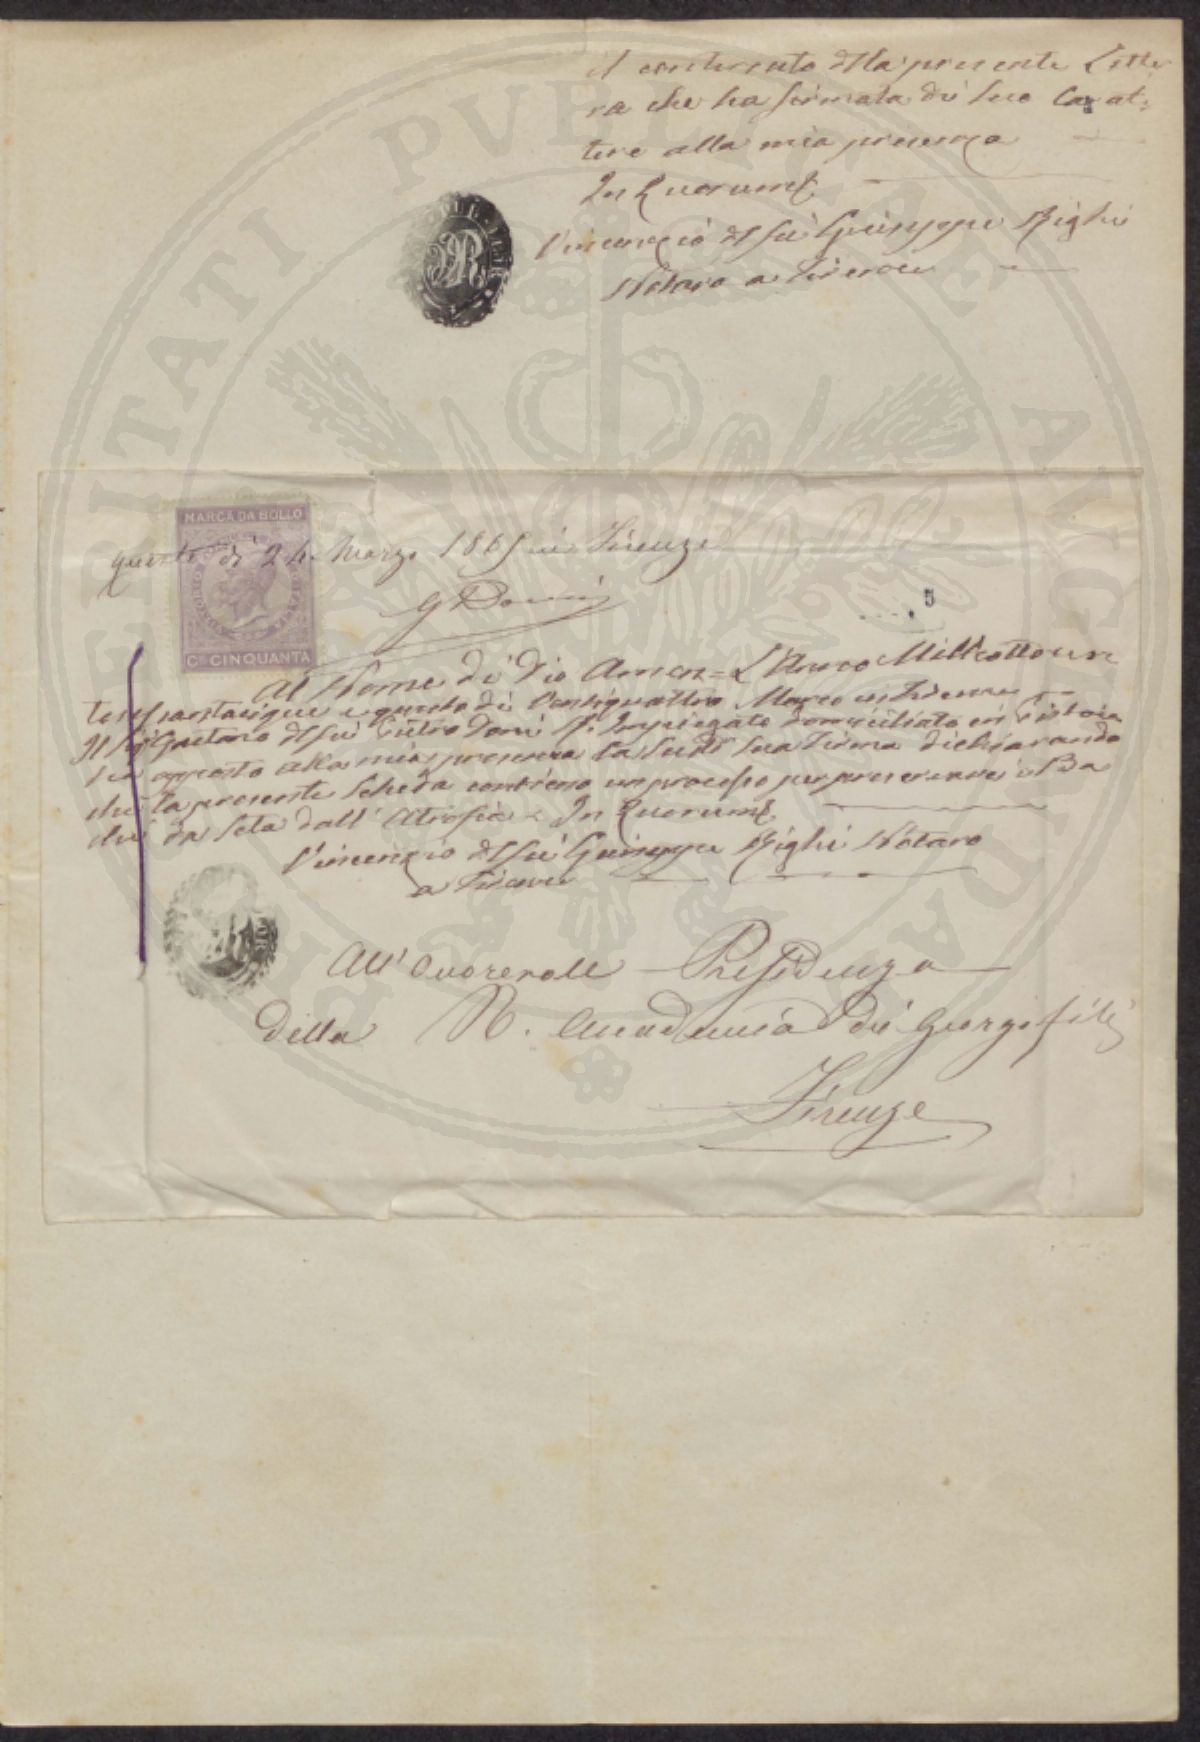 il contenuto della presente Lette
ra che ha firmata di suo Carat-
tere alla mia presenza
In Quorum
Vincenzio del fu Giuseppe Righi
Notaro a Firenze
MARCA DA BOLLO
questo dì 24 Marzo 1865 in Firenze
G Doni
5
Ct. CINQUANTA
Al Nome di Dio Amen = L'Anno Milleottocen
tosessantacinque e questo dì Ventiquattro Marzo in Firenze
Il Sigr Gaetano del fu Pietro Doni Impiegato domiciliato in Pistoia
ha apposto alla mia presenza la sudd. sua Firma dichiarando
che la presente Scheda contiene un processo per preservare i Ba
chi da Seta dall' Atrofia - In Quorum
Vincenzio del fu Giuseppe Righi Notaro
a Firenze
All' Onorevole Presidenza
della R. Accademia dei Georgofili
Firenze
PUBLICAE
PROSPERITATI
AUGENDAE